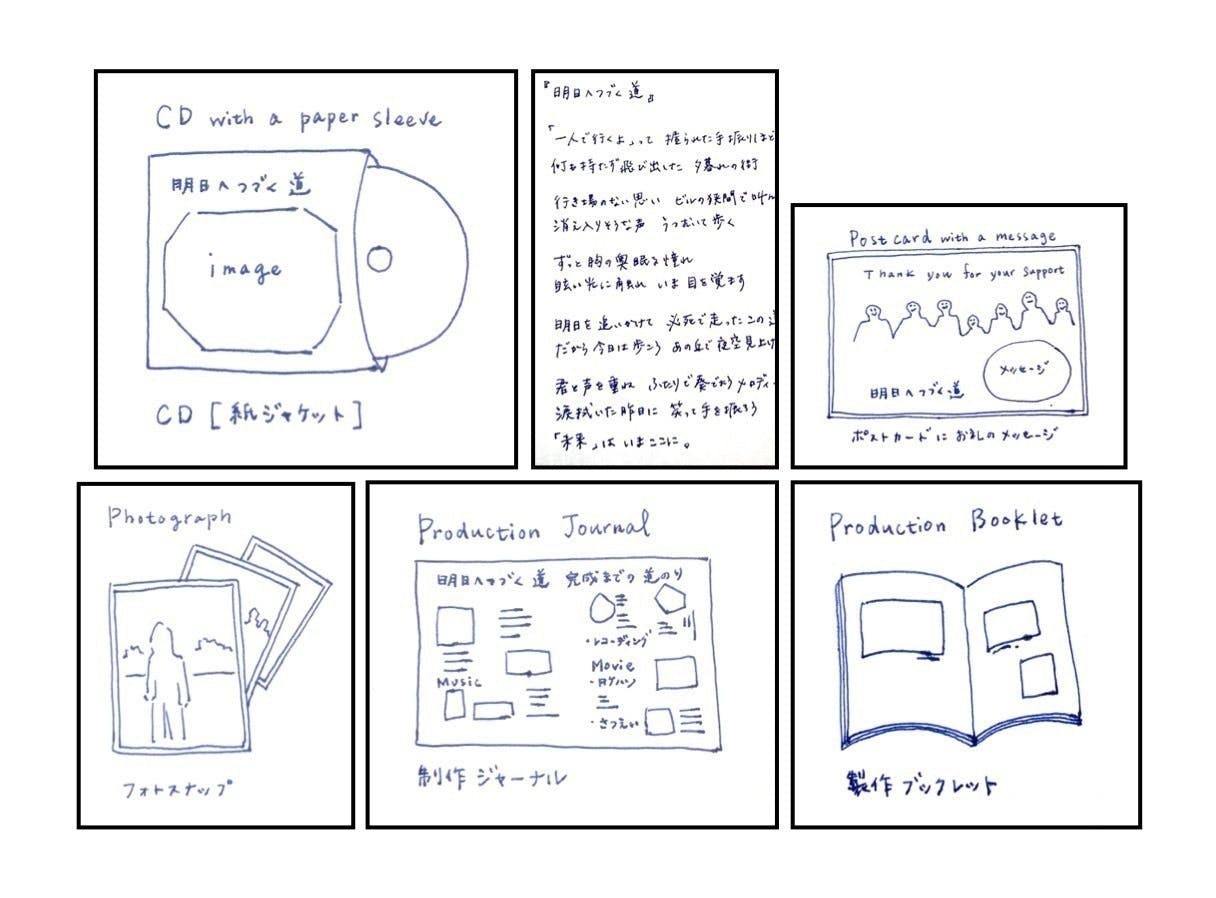 CD with a paper sleeve
明日へつづく道
image
CD [紙ジャケット]
『明日へつづく道』
「一人で行くよ」って 握られた手振りほど
何も持たず飛び出した 夕暮れの街
行き場のない思い ビルの狭間で
消え入りそうな声 うつむいて歩く
ずっと胸の奥眠る憧れ
眩い光に触れ いま目を覚ます
明日を追いかけて 必死で走ったこの道
だから今日は歩こう あの丘で夜空見上げ
君と声を重ね ふたりで奏でよう メロディー
涙拭いた昨日に 笑って手を振ろう
「未来」はいまここに。
Post card with a message
Thank you for your support
メッセージ
明日へつづく道
ポストカードにお礼のメッセージ
Photograph
フォトスナップ
Production Journal
明日へつづく道 完成までの道のり
・レコーディング
Music
Movie
・ロケハン
・さつえい
制作ジャーナル
Production Booklet
製作ブックレット